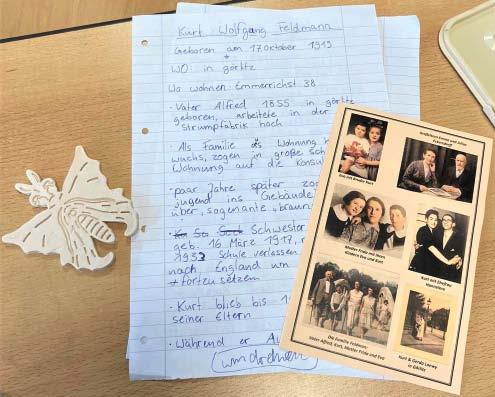 Kurt Wolfgang Feldmann
Geboren am 17 oktober 1919
WO: in görlitz
Wo wohnen: Emmerrichst 38
• Vater Alfred 1855 in görlitz
geboren, arbeitete in der
strumpfabrik hoch
• Als Familie Wohnung
wuchs, zogen in große
Wohnung auf die Konsul
• paar Jahre später
jugend ins Gebäude
über, sogenante, braun
Schwester
geb. 16 März 1917,
1933 Schule verlassen
nach England um
fortsetzen
• Kurt blieb bis
seiner Eltern
• Während er
umdrehen
Großeltern Emma und Julius
Eva mit Bruder Kurt
Mutter Frida mit ihren
Kindern Eva und Kurt
Kurt mit
Die Familie Feldmann:
Vater Alfred, Kurt, Mutter Frida und Eva
Kurt & Gerda Loewy
in Görlitz